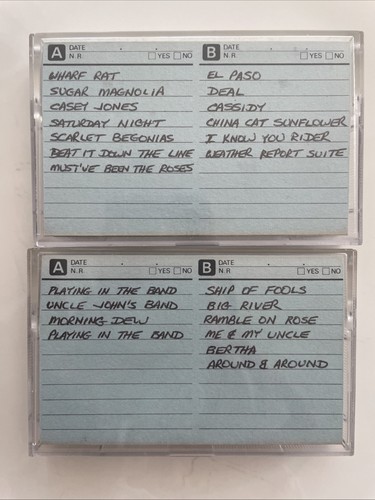 A DATE
N.R. YES NO
WHARF RAT
SUGAR MAGNOLIA
CASEY JONES
SATURDAY NIGHT
SCARLET BEGONIAS
BEAT IT DOWN THE LINE
MUST'VE BEEN THE ROSES
B DATE
N.R. YES NO
EL PASO
DEAL
CASSIDY
CHINA CAT SUNFLOWER
I KNOW YOU RIDER
WEATHER REPORT SUITE
A DATE
N.R. YES NO
PLAYING IN THE BAND
UNCLE JOHN'S BAND
MORNING DEW
PLAYING IN THE BAND
B DATE
N.R. YES NO
SHIP OF FOOLS
BIG RIVER
RAMBLE ON ROSE
ME & MY UNCLE
BERTHA
AROUND & AROUND